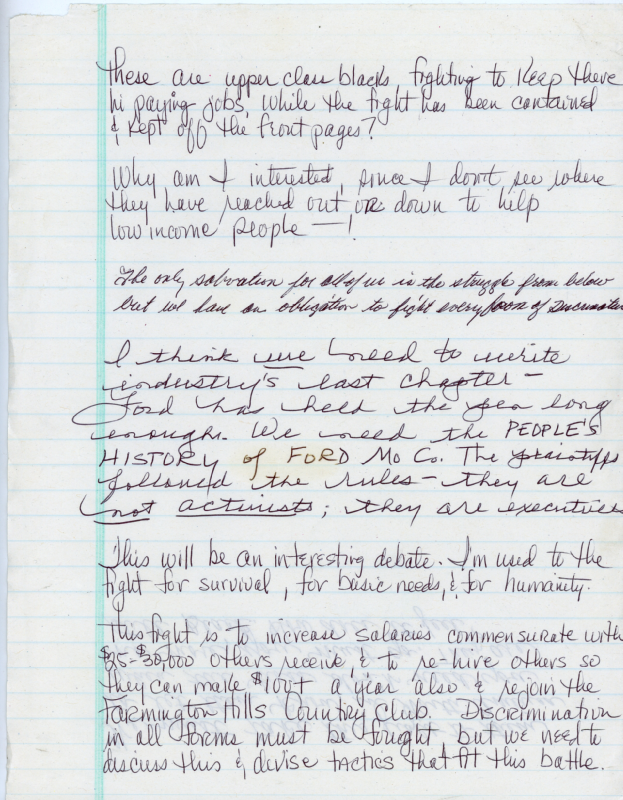 These are upper class blacks, fighting to Keep there
hi paying jobs, while the fight has been contained
& kept off the front pages?
Why am I interested, since I don't see where
they have reached out or down to help
low income people — !
The only salvation for all of us is the struggle from below
but we have an obligation to fight every form of
I think we need to write
industry's last chapter —
Ford has held the pen long
enough. We need the PEOPLE'S
HISTORY of FORD Mo Co. The plaintiffs
followed the rules — they are
not activists; they are executives
This will be an interesting debate. I'm used to the
fight for survival, for basic needs, & for humanity.
This fight is to increase salaries commensurate with
$25-$30,000 others receive, & to re-hire others so
they can make $100+ a year also & rejoin the
Farmington Hills Country Club. Discrimination
in all forms must be fought but we need to
discuss this & divise tactics that fit this battle.